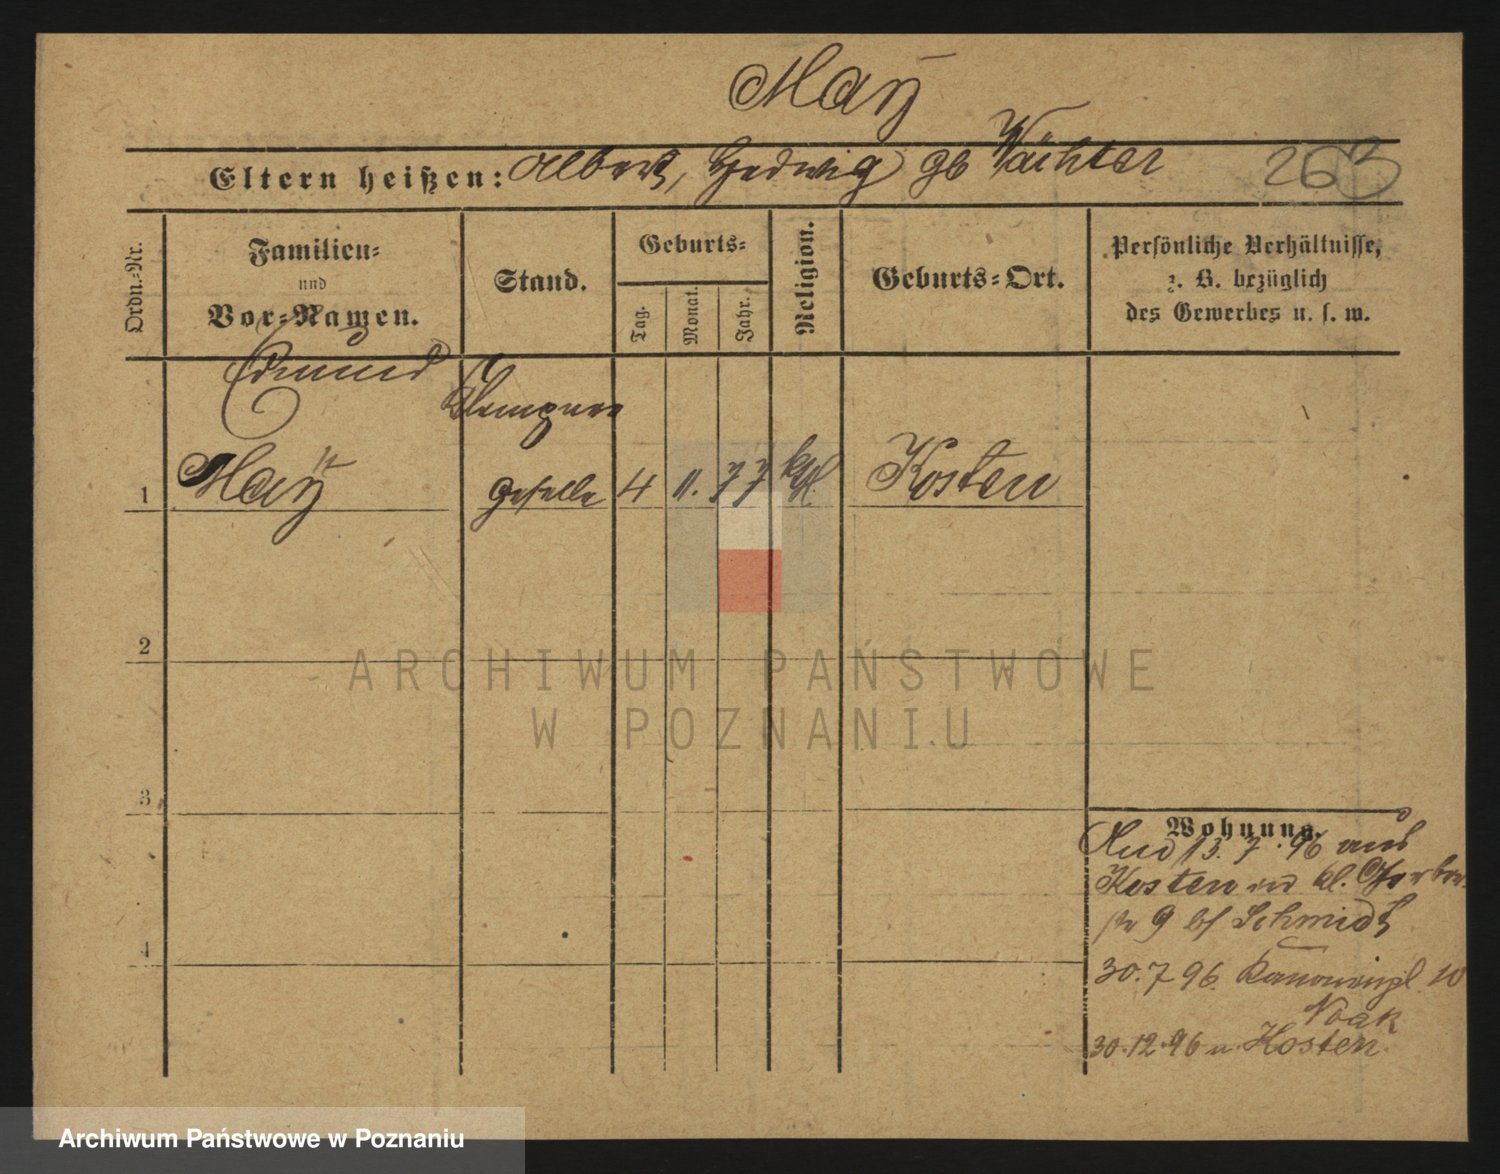 May
Eltern heißen: Albert, Hedwig gb Wächter
263
Ordn.-Nr.
Familien-
und
Vor-Namen.
Stand.
Geburts-
Tag.
Monat.
Jahr.
Religion.
Geburts-Ort.
Persönliche Verhältnisse,
z. B. bezüglich
des Gewerbes u. s. w.
Edmund
Klempner
1 May geselle 4 11. 77 kth. Kosten
2
3
4
ARCHIWUM PAŃSTWOWE
W POZNANIU
Wohnung.
13. 7. 96 aus
Kosten kl. Gerber
str 9 bei Schmidt
30. 7 96. 10
Noak
30. 12. 96 n. Kosten.
Archiwum Państwowe w Poznaniu